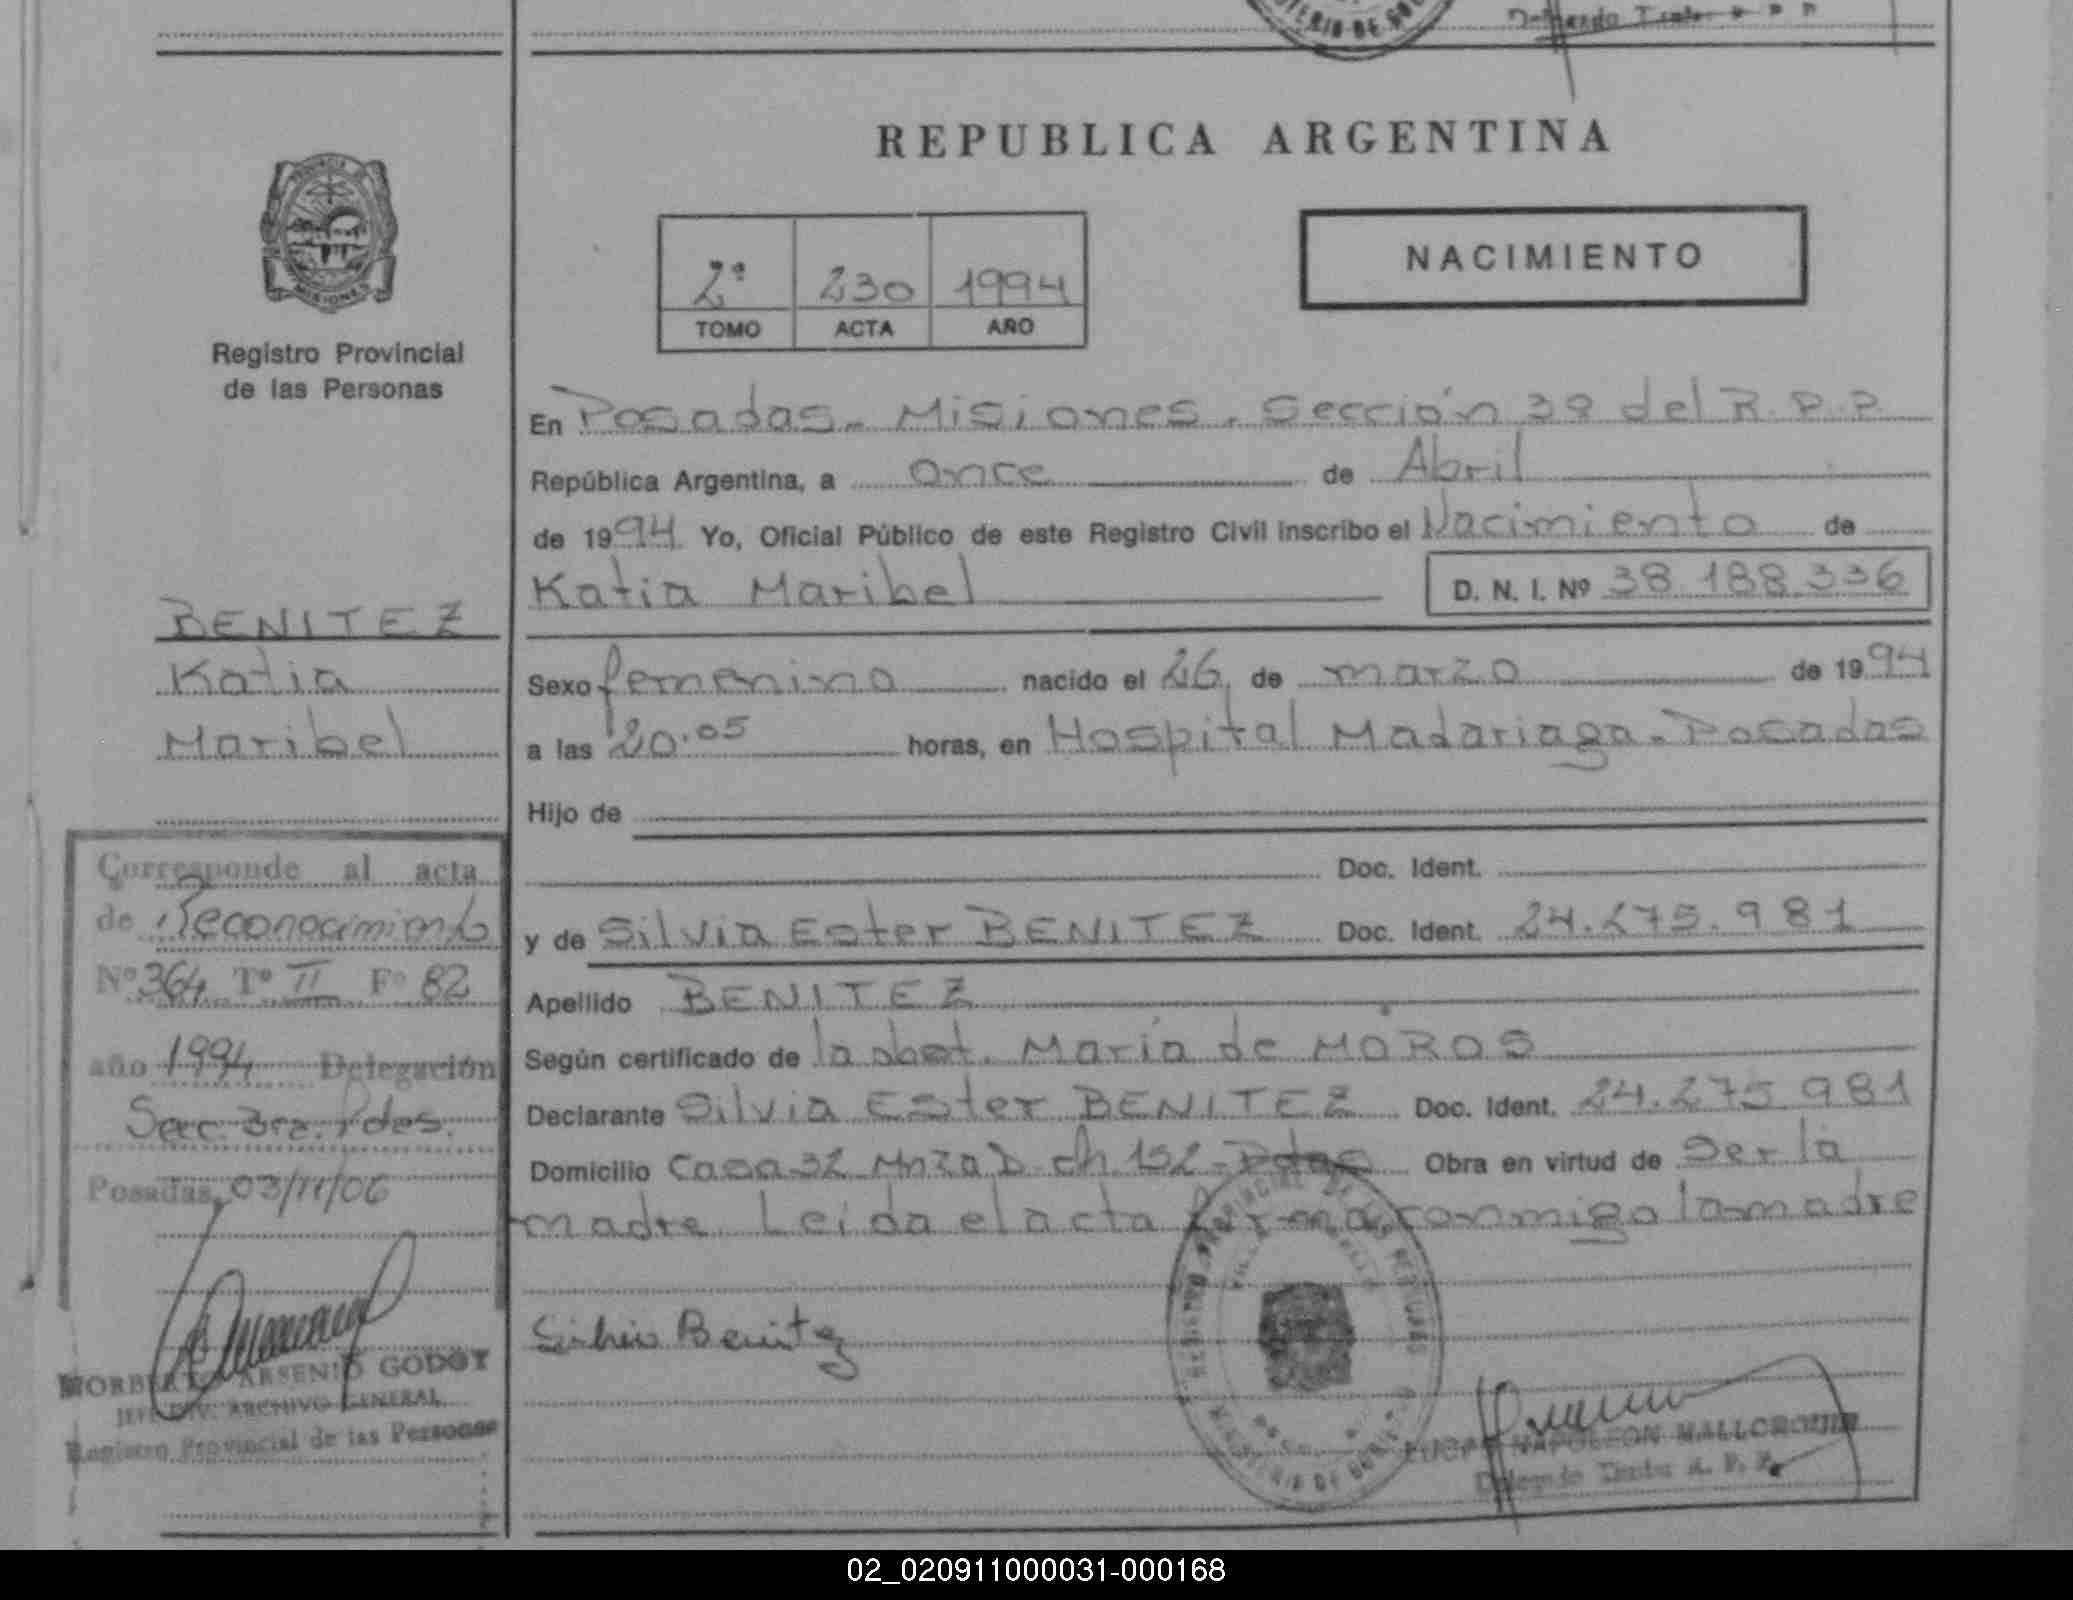 REPUBLICA ARGENTINA
PROVINCIA DE
MISIONES
Registro Provincial
de las Personas
2ª 230 1994
TOMO ACTA AÑO
NACIMIENTO
En Posadas - Misiones. Sección 3ª del R.P.P.
República Argentina, a once de Abril
de 1994 Yo, Oficial Público de este Registro Civil inscribo el Nacimiento de
Katia Maribel D. N. I. Nº 38.188.336
Sexo femenino nacido el 26 de marzo de 1994
a las 20.05 horas, en Hospital Madariaga - Posadas
Hijo de
Doc. Ident.
y de Silvia Ester BENITEZ Doc. Ident. 24.275.981
Apellido BENITEZ
Según certificado de la obst. María de MOROS
Declarante Silvia Ester BENITEZ Doc. Ident. 24.275.981
Domicilio Casa 32 Mnza D ch 152 - Pdas Obra en virtud de ser la
madre. Leida el acta firma conmigo la madre
Silvia Benitez
REGISTRO PROVINCIAL DE LAS PERSONAS
MINISTERIO DE GOBIERNO
NAPOLEON MALLORQUIN
Delegado Titular R. P. P.
BENITEZ
Katia
Maribel
Corresponde al acta
de Reconocimiento
Nº 364 Tº II Fº 82
año 1994 Delegación
Secc. 3ra. Pdas.
Posadas, 03/11/06
NORBERTO ARSENIO GODOY
JEFE DIV. ARCHIVO GENERAL
Registro Provincial de las Personas
02_020911000031-000168